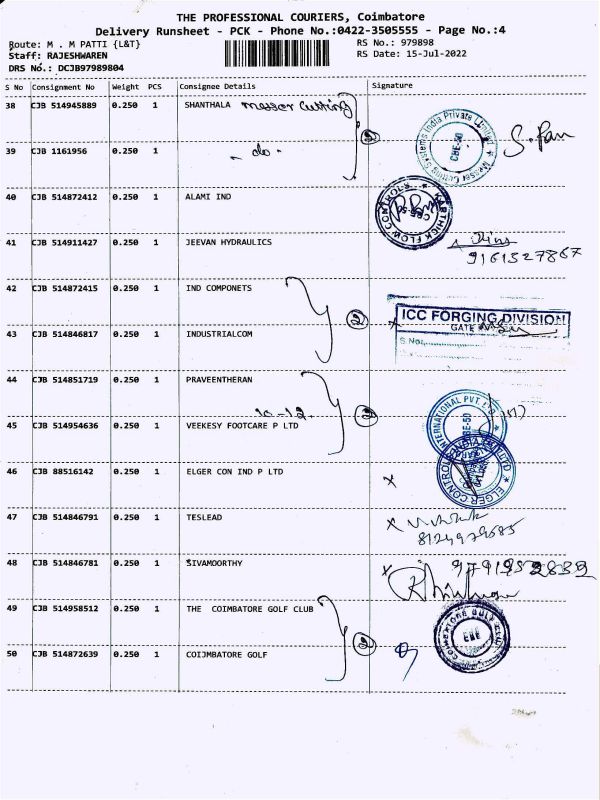 THE PROFESSIONAL COURIERS, Coimbatore
Delivery Runsheet - PCK - Phone No.:0422-3505555 - Page No.:4
Route: M . M PATTI {L&T} RS No.: 979898
Staff: RAJESHWAREN RS Date: 15-Jul-2022
DRS No.: DCJB97989804
S No Consignment No Weight PCS Consignee Details Signature
38 CJB 514945889 0.250 1 SHANTHALA Messer Cutting
Messer Cutting Systems India Private Limited CBE-50
2
39 CJB 1161956 0.250 1 - do -
40 CJB 514872412 0.250 1 ALAMI IND
KARTHICK FLOW CONTROLS CBE-50
41 CJB 514911427 0.250 1 JEEVAN HYDRAULICS
9161527867
42 CJB 514872415 0.250 1 IND COMPONETS
2
ICC FORGING DIVISION
GATE
S.No:
43 CJB 514846817 0.250 1 INDUSTRIALCOM
44 CJB 514851719 0.250 1 PRAVEENTHERAN
10-12.
2
INTERNATIONAL PVT.
45 CJB 514954636 0.250 1 VEEKESY FOOTCARE P LTD
46 CJB 88516142 0.250 1 ELGER CON IND P LTD
ELGER CONTROL
47 CJB 514846791 0.250 1 TESLEAD
8124979685
48 CJB 514846781 0.250 1 SIVAMOORTHY
9791952832
49 CJB 514958512 0.250 1 THE COIMBATORE GOLF CLUB
2
COIMBATORE GOLF CLUB
50 CJB 514872639 0.250 1 COIJMBATORE GOLF